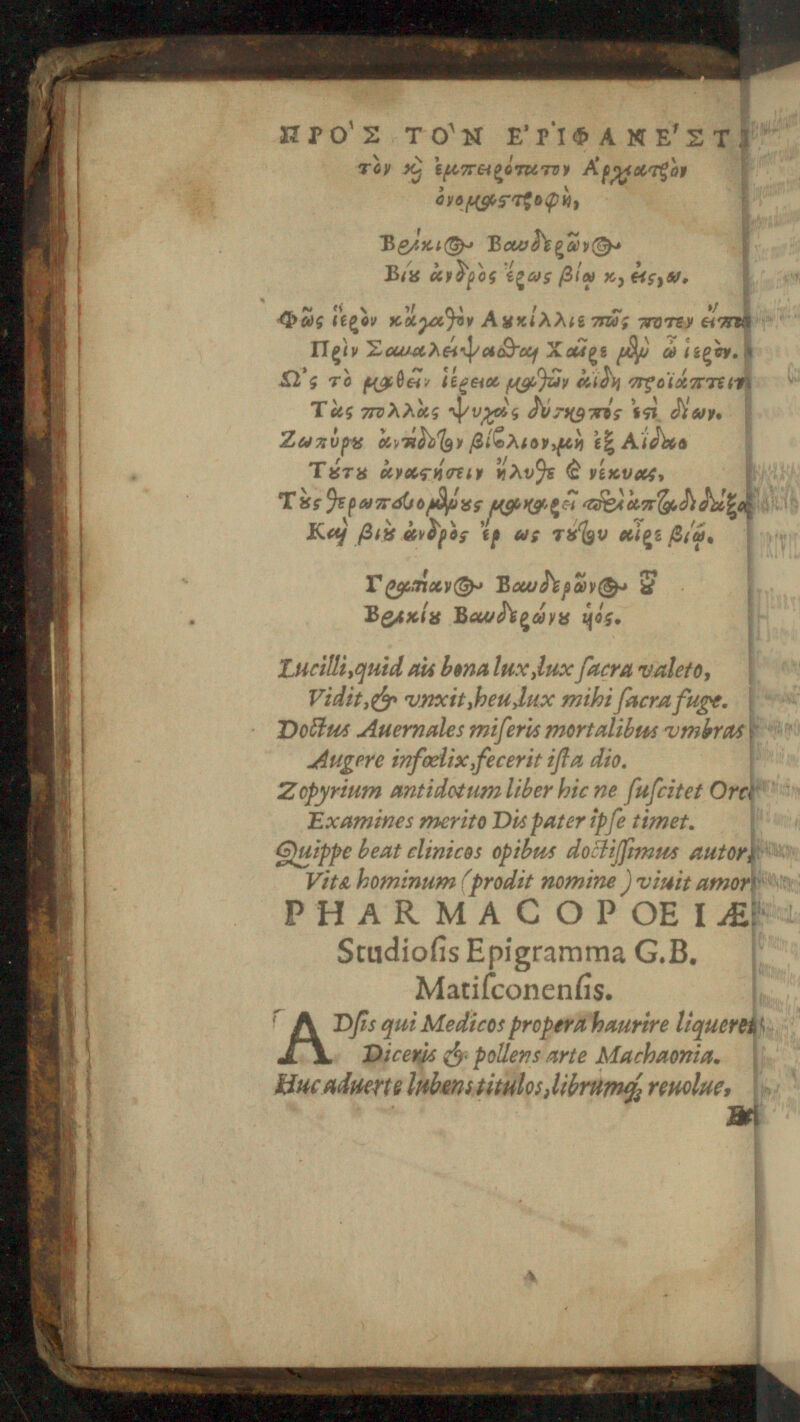 ΠΡΟ'Σ ΤΟ'Ν Ε'ΡΙΦΑΝΕ'ΣΤ
τὸν ϗ ἐμπειρότατον Α'ρχιατρὸν
ὀνομαστροφὴ,
Βρίκιος Βαυδερῶνος
Βίου ἀνδρὸς ἔρως βίῳ κ, εἰς, ω.
Φῶς ἱερὸν κἀγαθὸν Λουκίλλιε πῶς ποτεν εἶπ
Πρὶν Σαμαλείψασθαι Χαῖρε μὲν ὦ ἱερὸν.
Ω'ς τὸ μαθεῖν ἱέρεια μαθῶν ἀΐδη προϊάπτειν
Τὰς πολλὰς ψυχὰς δύσκοπός ἐστι δίων.
Ζωπύρου ἀντίδοτον βίβλιον, μὴ ἐξ Αἴδαο
Τούτου ἀναστήσειν ἤλυθε ϗ νέκυας,
Τοὺς θεραπευομένους
Καὶ βιοῦ ἀνδρὸς ἔρ ως τούτου αἶρε βίῳ.
Γρατιανος Βαυδερῶνος
Βρικίου Βαυδερώνου ὑός.
Lucilli, quid ais bona lux, lux sacra valeto,
Vidit, & vnxit, heu, lux mihi sacra fuge.
Doctus Auernales miseris mortalibus vmbras
Augere infœlix, fecerit ista dio.
Zopyrium antidotum liber hic ne suscitet Orci
Examines merito Dis pater ipse timet.
Quippe beat clinicos opibus doctissimus autor,
Vitæ hominum (prodit nomine) viuit amor
PHARMACOPOEIÆ
Studiosis Epigramma G.B.
Matisconensis.
ADsis qui Medicos properâ haurire liquores
Diceris & pollens arte Machaonia.
Huc aduerte lubens titulos, librumq; reuolue,